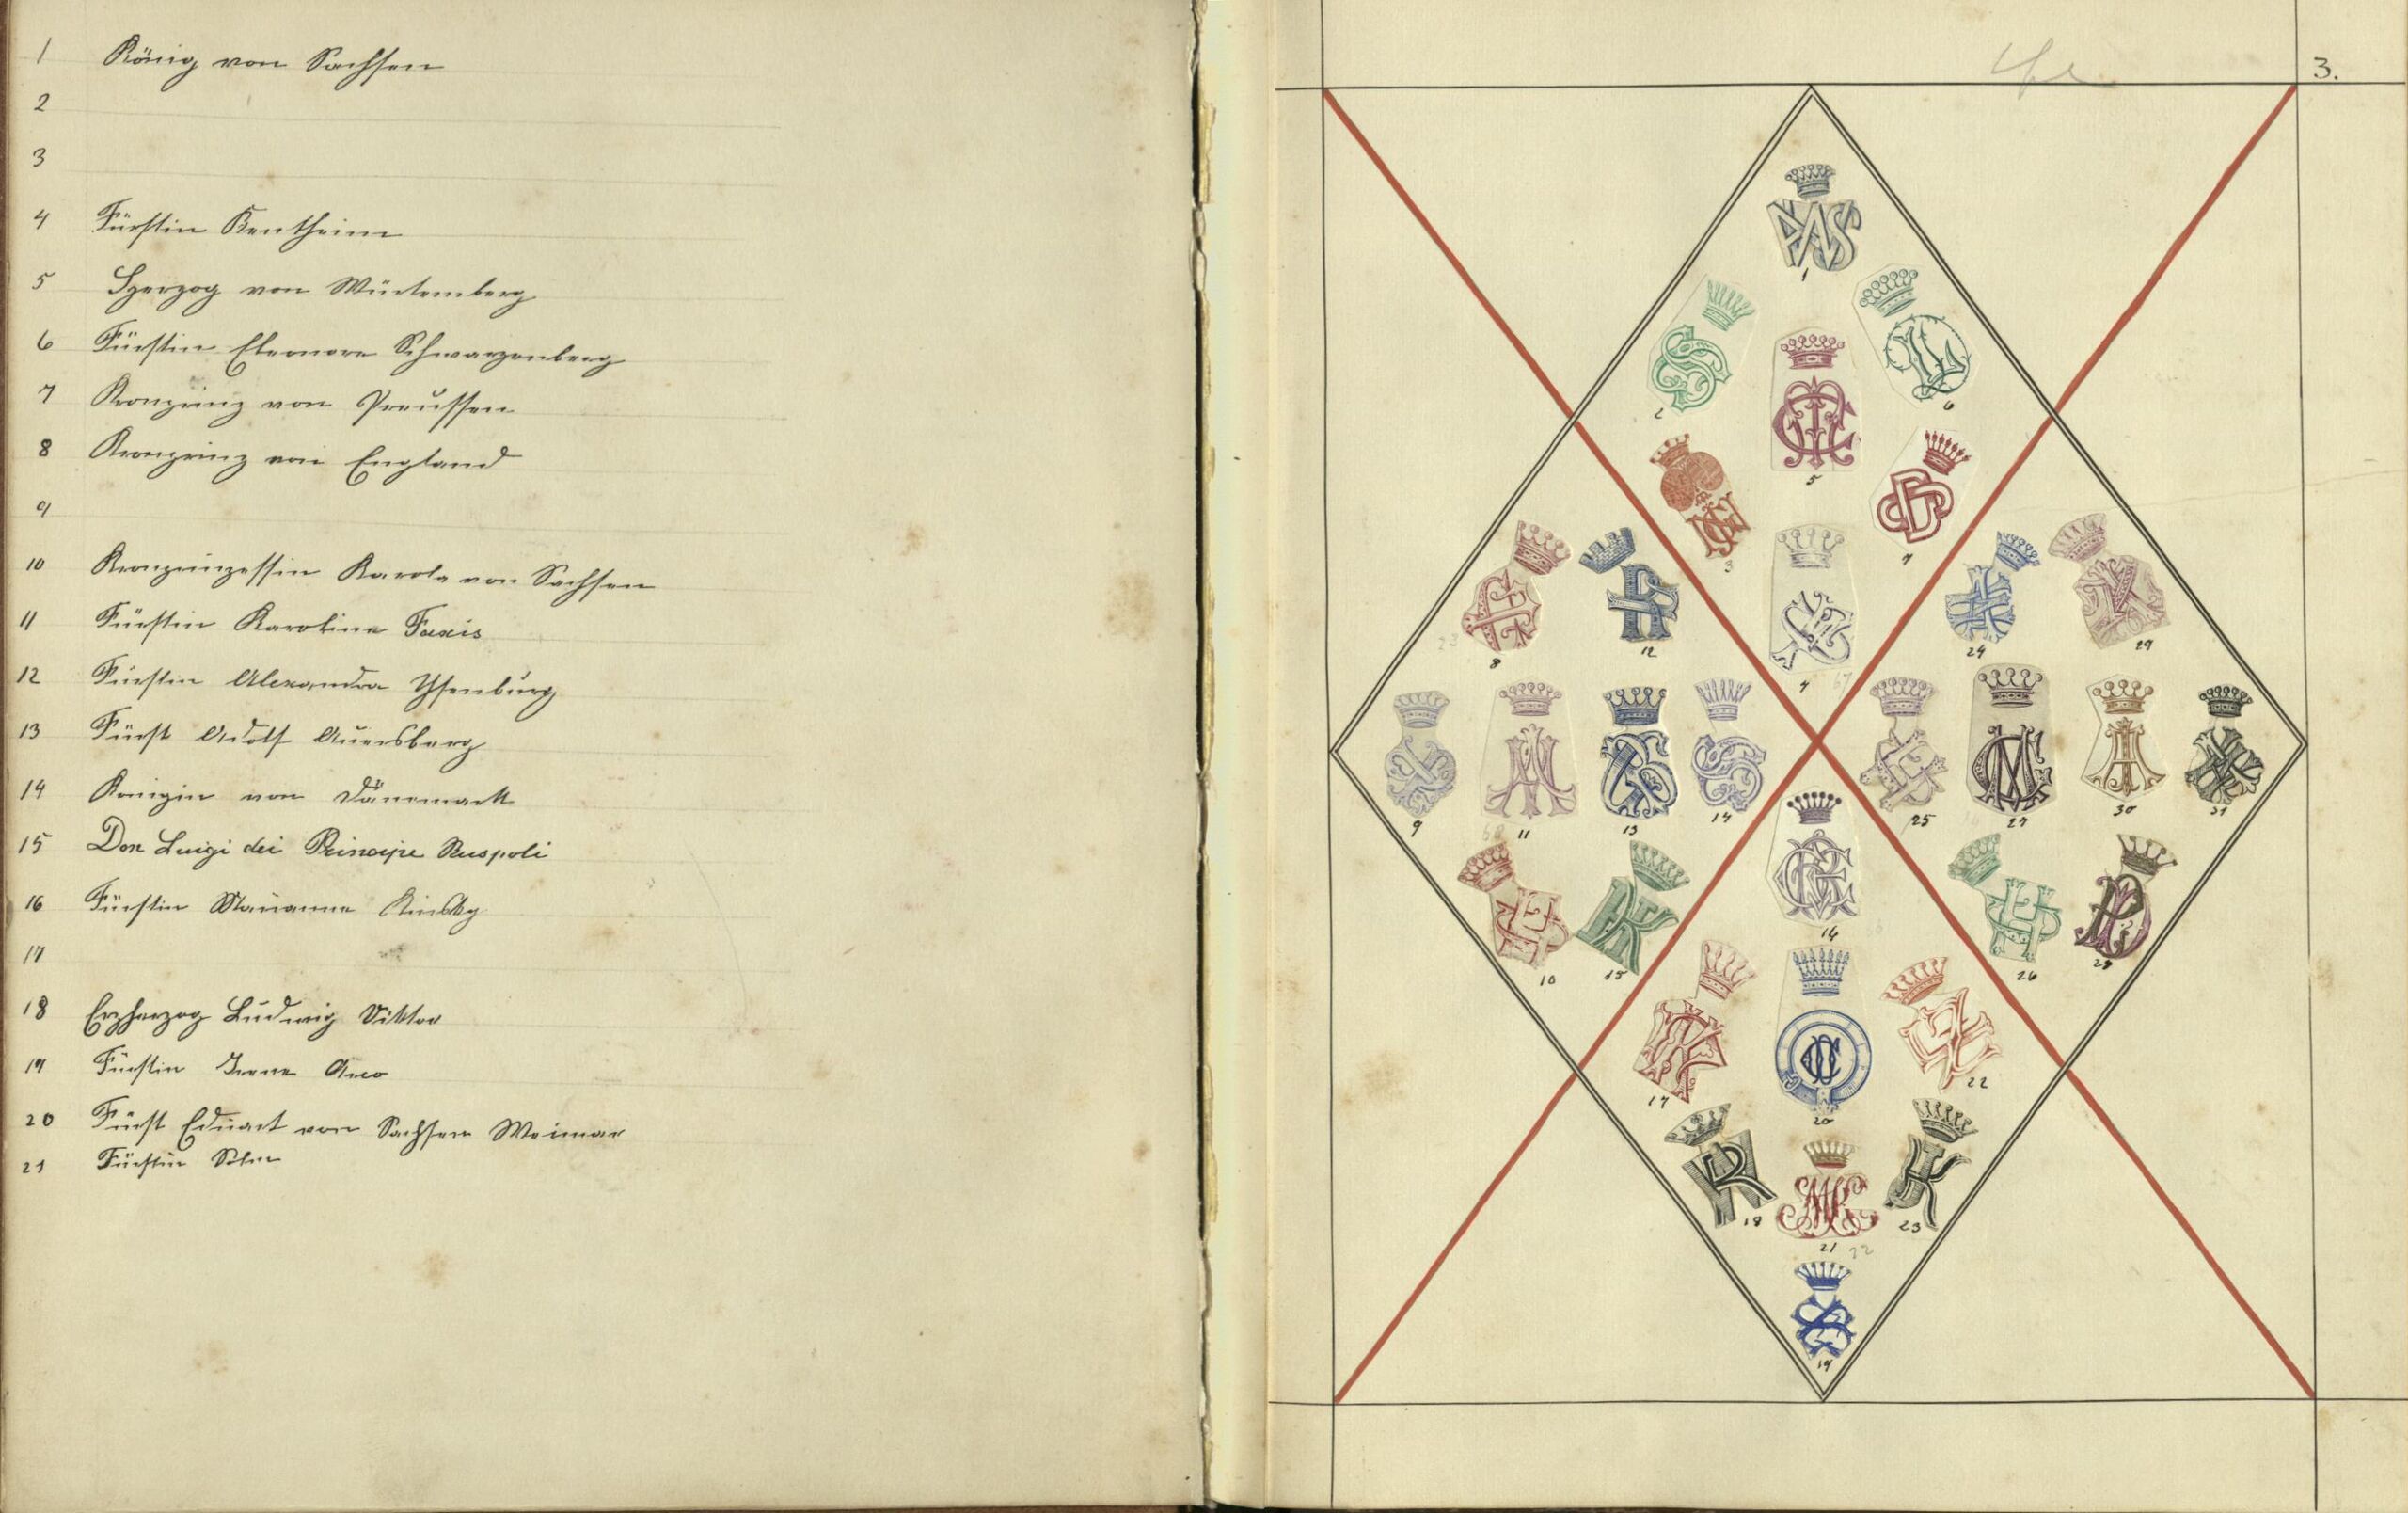 1 König von Sachsen
2
3
4 Fürstin Bentheim
5 Herzog von Würtemberg
6 Fürstin Eleonore Schwarzenberg
7 Kronprinz von Preussen
8 Kronprinz von England
9
10 Kronprinzessin Karola von Sachsen
11 Fürstin Karoline Taxis
12 Fürstin Alexandra Ysenburg
13 Fürst Adolf Auersberg
14 Königin von Dänemark
15 Don Luigi dei Principe Ruspoli
16 Fürstin Marianne Kinsky
17
18 Erzherzog Ludwig Viktor
19 Fürstin Irene Arco
20 Fürst Eduart von Sachsen Weimar
21 Fürstin
3.
1
2
6
5
3
7
8
12
4
24
29
9
11
13
14
25
27
30
31
10
15
16
26
28
17
20
22
18
21
23
19